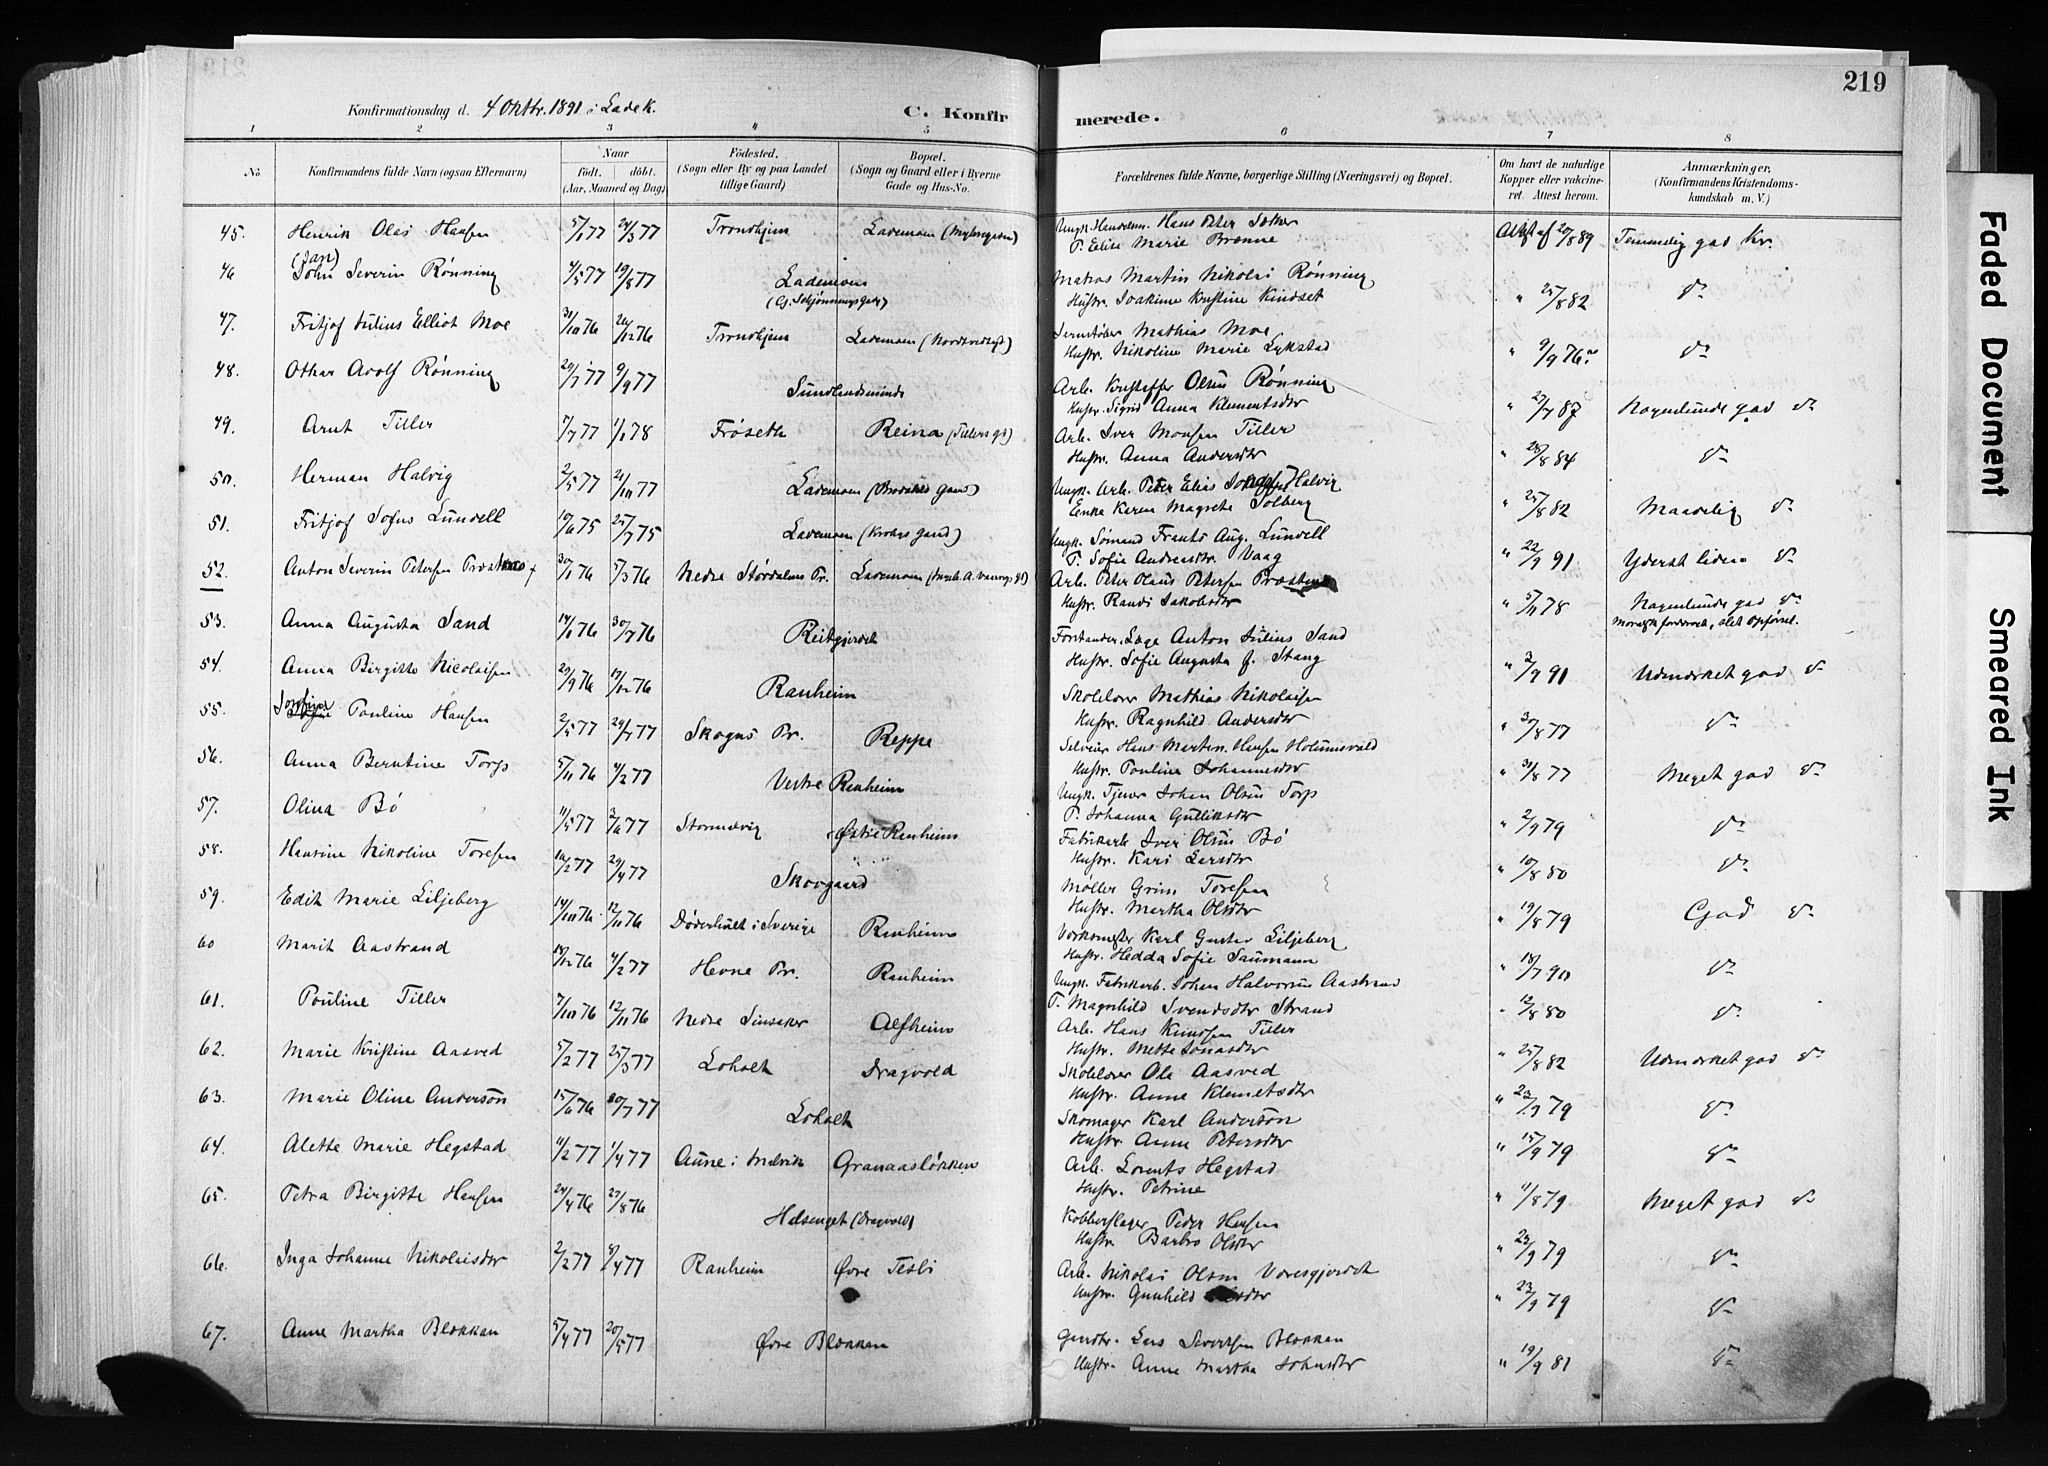 219
Konfirmationsdag d. 4 Oktbr. 1891 i Lade K.
C. Konfirmerede.
1 2 3 4 5 6 7 8
No. Konfirmandens fulde Navn (ogsaa Efternavn) Naar Født. døbt. (Aar, Maaned og Dag) Fødested. (Sogn eller By og paa Landet tillige Gaard) Bopæl. (Sogn og Gaard eller i Byerne Gade og Hus-No. Forældrenes fulde Navne, borgerlige Stilling (Næringsvei) og Bopæl. Om havt de naturlige Kopper eller vakcineret. Attest herom. Anmærkninger. (Konfirmandens Kristendomskundskab m. V.)
45. Henrik Olai Hansen 5/1 77 24/3 77 Trondhjem Lademoen Ungk. Handelsm. Hans Peter
P. Elise Marie Brænne Attest af 20/8 89 Temmelig god Kr.
46 (Jan) John Severin Rønning 4/5 77 19/8 77 Lademoen Matros Martin Nikolai Rønning
Hustr. Joakime Kristine Kindset " 25/8 82 do
47. Fritjof Julius Elliot Moe 31/10 76 26/12 76 Trondhjem Lademoen Mathias Moe
Hustr. Nikoline Marie Lykstad " 9/9 76 do
48. Othar Adolf Rønning 20/7 77 9/9 77 Sundlandsminde Arb. Kristoffer Olsen Rønning
Hustr. Sigrid Anna Klementsdtr " 27/7 87 Nogenlunde god do
49. Arnt Tiller 5/7 77 1/1 78 Frøseth Reina (Tillers gd) Arb. Iver Monsen Tiller
Hustr. Anna Andersdtr " 28/8 84 do
50. Herman Halvig 2/5 77 21/10 77 Lademoen Ungk. Arb. Peter Elias Halvig
Enke Karen Magrete Solberg " 25/8 82 Maadelig do
51. Fritjof Sofus Lundell 10/6 75 25/7 75 Lademoen (Krohgs Gaard) Ungk. Sømand Frants Aug. Lundell
P. Sofie Andreasdtr. Vaag " 22/9 91 Yderst liden do
52. Anton Severin Petersen 30/1 76 5/3 76 Nedre Stördalens Pr. Lademoen Arb. Peter Olaus Petersen
Hustr. Randi Jakobsdtr " 5/11 78 Nogenlunde god do
moralsk fordærvet, slet Opførsel.
53. Anna Augusta Sand 14/1 76 30/7 76 Reitgjerdet Forstander, Læge Anton Julius Sand
Hustr. Sofie Augusta f. Stang " 2/9 91 Udmærket god do
54. Anna Birgitte Nicolaisen 29/9 76 17/12 76 Ranheim Skolelærer Mathias Nikolaisen
Hustr. Ragnhild Andersdtr " 3/8 77 do
55. Josefine Pauline Hansen 2/5 77 29/7 77 Skogns Pr. Reppe Selveier Hans Martin Hansen Holumsvald
Hustr. Pauline Johannesdtr " 31/8 77 Meget god do
56. Anna Berntine Torp 5/11 76 4/2 77 Vestre Ranheim Ungk. Tjener Johan Olsen Torp
P. Johanna Gulliksdtr " 2/9 79 do
57. Olina Bö 11/5 77 3/6 77 Østre Ranheim Fabrikarb. Iver Olsen Bö
Hustr. Kari Larsdtr " 10/8 80 do
58. Hansine Nikoline Toresen 16/2 77 29/4 77 Skovgaard Møller Grim Toresen
Hustr. Martha Olsdtr " 19/8 79 God do
59. Edit Marie Liljeberg 14/10 76 12/11 76 i Sverige Ranheim Værksmester Karl Gustav Liljeberg
Hustr. Hedda Sofie Saumann " 18/7 90 do
60 Marit Aastrand 18/12 76 4/2 77 Hevne Pr. Ranheim Ungk. Fabrikarb. Johan Halvorsen Aastrand
P. Magnhild Svendsdtr Strand " 12/8 80 do
61. Pauline Tiller 7/10 76 12/11 76 Nedre Sinsaker Alfheim Arb. Hans Knudsen Tiller
Hustr. Mette Jonasdtr " 25/8 82 Udmærket god do
62. Marie Kristine Aasved 5/2 77 25/3 77 Loholt Dragvold Skolelærer Ole Aasved
Hustr. Anne Klemetsdtr " 23/9 79 do
63. Marie Oline Anderson 15/6 76 30/7 77 Loholt Skomager Karl Anderson
Hustr. Anne Petersdtr " 15/9 79 do
64. Alette Marie Hegstad 11/2 77 1/4 77 Aune i Malvik Granaasløkken Arb. Lorents Hegstad
Hustr. Petrine " 11/8 79 Meget god do
65. Petra Birgitte Hansen 24/4 76 27/8 76 Helsenget (Dragvold) Kobberslager Peder Hansen
Hustr. Barbro Olsdtr " 23/9 79 do
66. Inga Johanne Nikolaisdtr 2/2 77 8/4 77 Ranheim Øvre Tesli Arb. Nikolai Olsen Voresgjerdet
Hustr. Gunhild " 23/9 79 do
67. Anne Martha Blekkan 5/4 77 20/5 77 Øvre Blekkan Gmdbr. Lars Sivertsen Blekkan
Hustr. Anne Martha Johnsdtr " 19/9 81 do
Faded Document
Smeared Ink